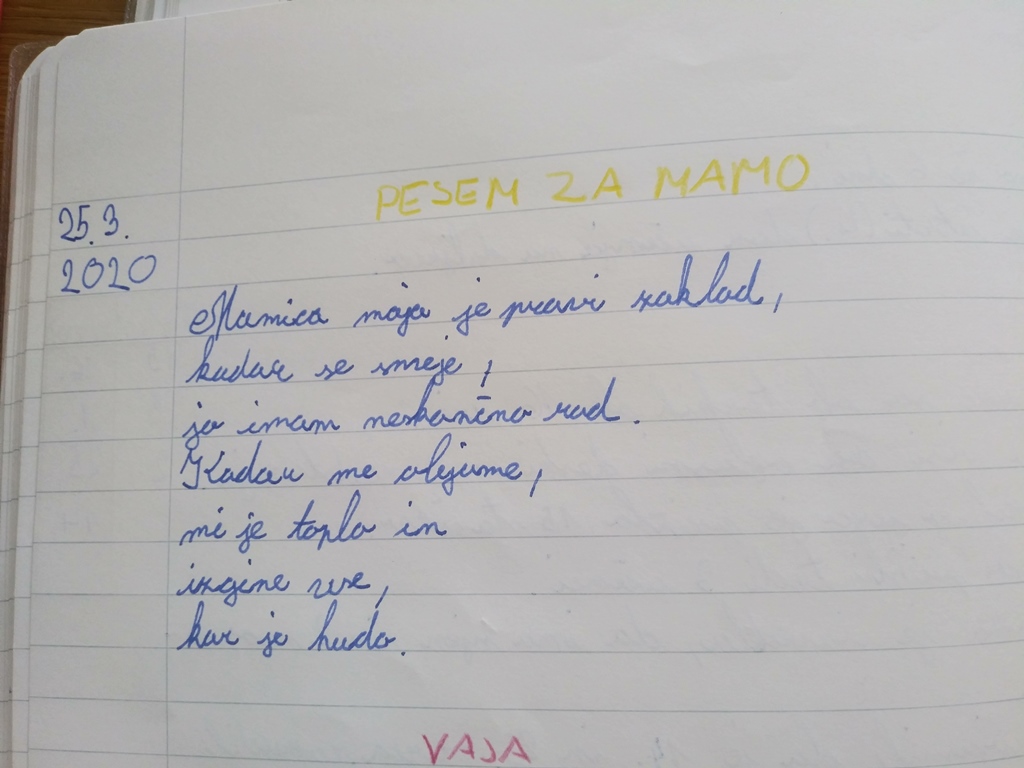 PESEM ZA MAMO
25.3.
2020
Mamica moja je pravi zaklad,
kadar se smeje,
jo imam neskončno rad.
Kadar me objame,
mi je toplo in
izgine vse,
kar je hudo.
VAJA